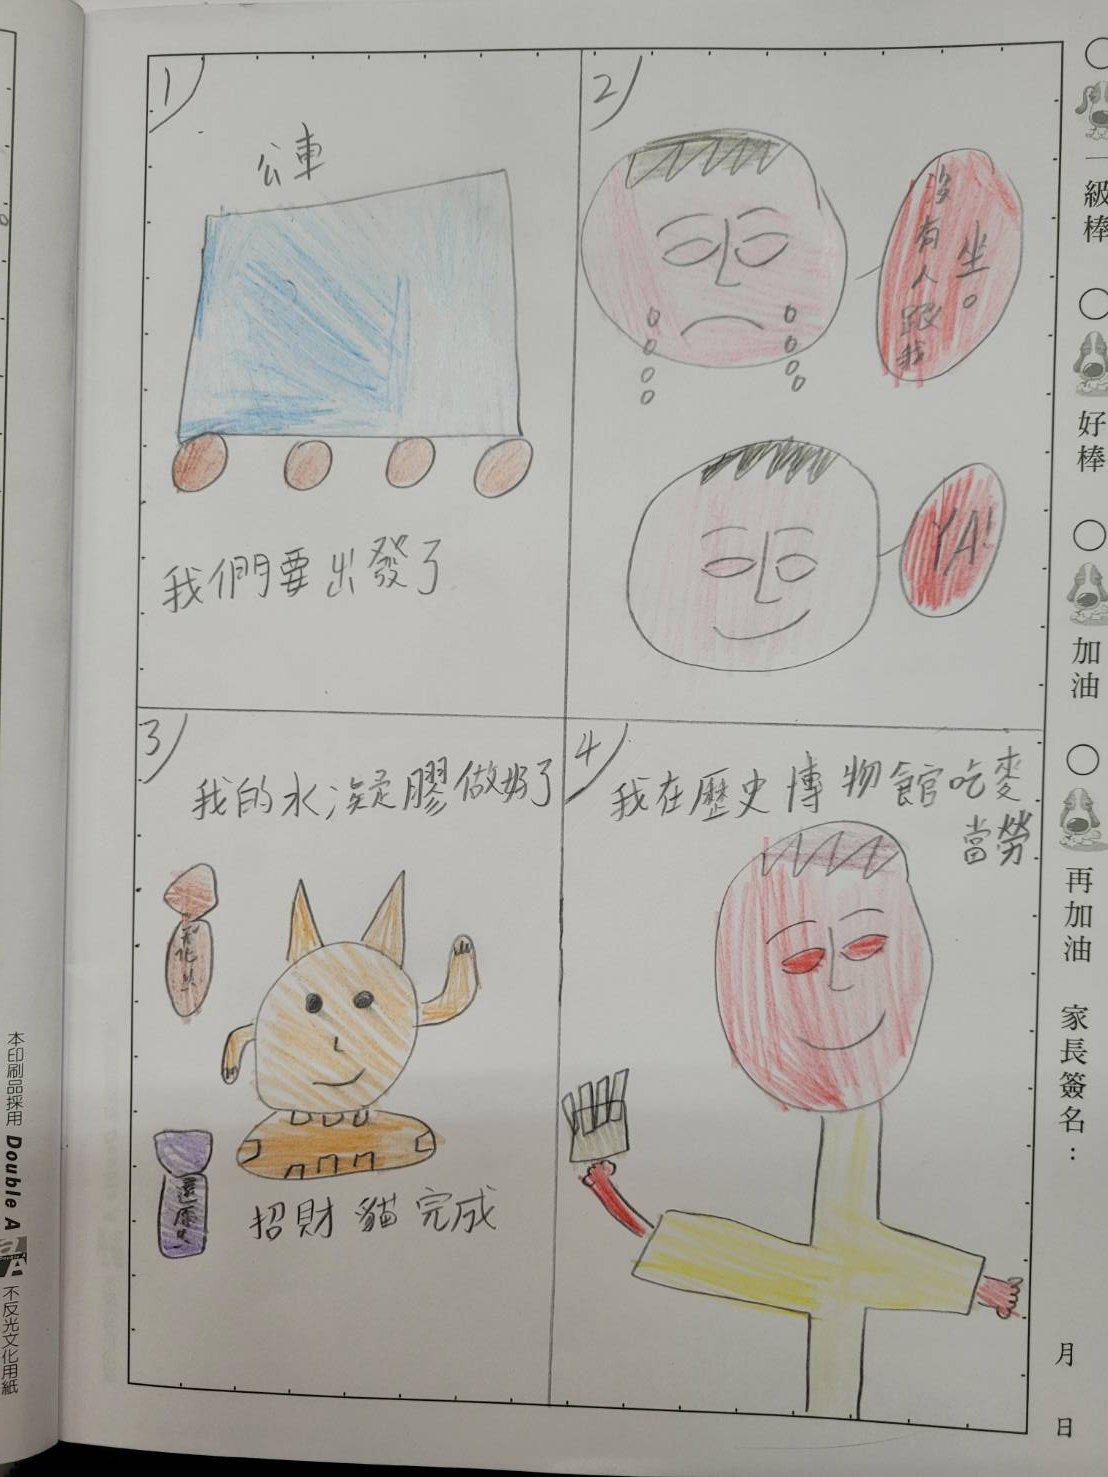 1)
公車
我們要出發了
2)
沒有人跟我
坐。
YA!
3)
我的水凝膠做好了
招財貓完成
4)
我在歷史博物館吃麥
當勞
一級棒
好棒
加油
再加油
家長簽名：
月
日
本印刷品採用 Double A 不反光文化用紙